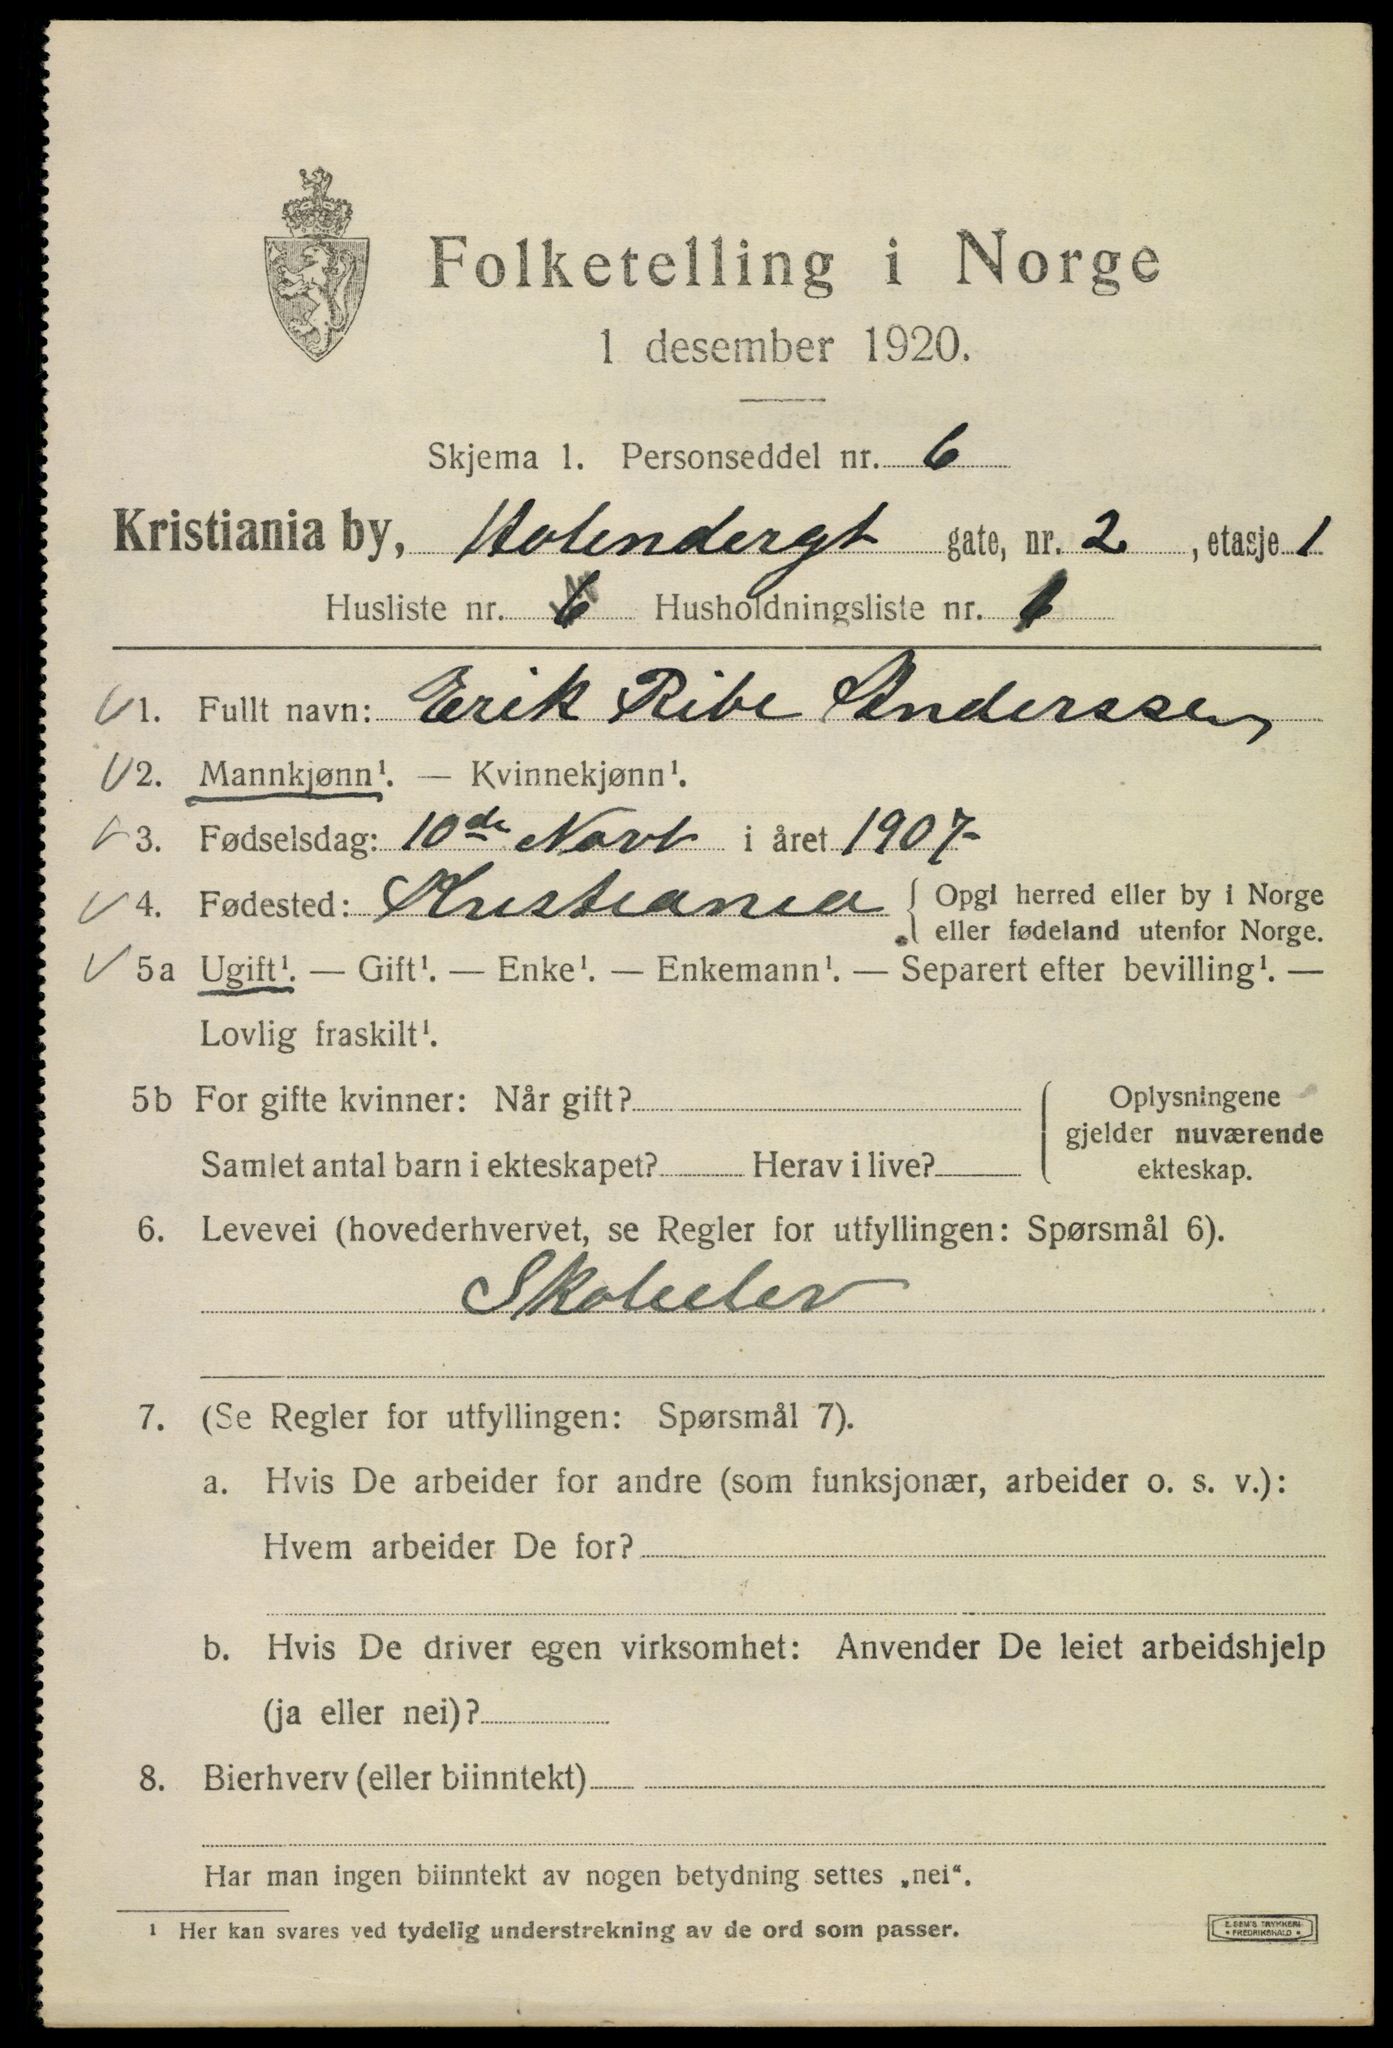 Folketelling i Norge
1 desember 1920.
Skjema 1. Personseddel nr. 6
Kristiania by, Holendergt gate, nr. 2, etasje 1
Husliste nr. 6 Husholdningsliste nr. 1
1. Fullt navn: Erik Ribe Anderssen
2. Mannkjønn¹. — Kvinnekjønn¹.
3. Fødselsdag: 10de Novb i året 1907
4. Fødested: Kristiania { Opgi herred eller by i Norge
eller fødeland utenfor Norge.
5a Ugift¹. — Gift¹. — Enke¹. — Enkemann¹. — Separert efter bevilling¹. —
Lovlig fraskilt¹.
5b For gifte kvinner: Når gift? { Oplysningene
gjelder nuværende
Samlet antal barn i ekteskapet? Herav i live? ekteskap.
6. Levevei (hovederhvervet, se Regler for utfyllingen: Spørsmål 6).
Skoleelev
7. (Se Regler for utfyllingen: Spørsmål 7).
a. Hvis De arbeider for andre (som funksjonær, arbeider o. s. v.):
Hvem arbeider De for?
b. Hvis De driver egen virksomhet: Anvender De leiet arbeidshjelp
(ja eller nei)?
8. Bierhverv (eller biinntekt)
Har man ingen biinntekt av nogen betydning settes „nei“.
¹ Her kan svares ved tydelig understrekning av de ord som passer.
E. SEM'S TRYKKERI
* FREDRIKSHALD *